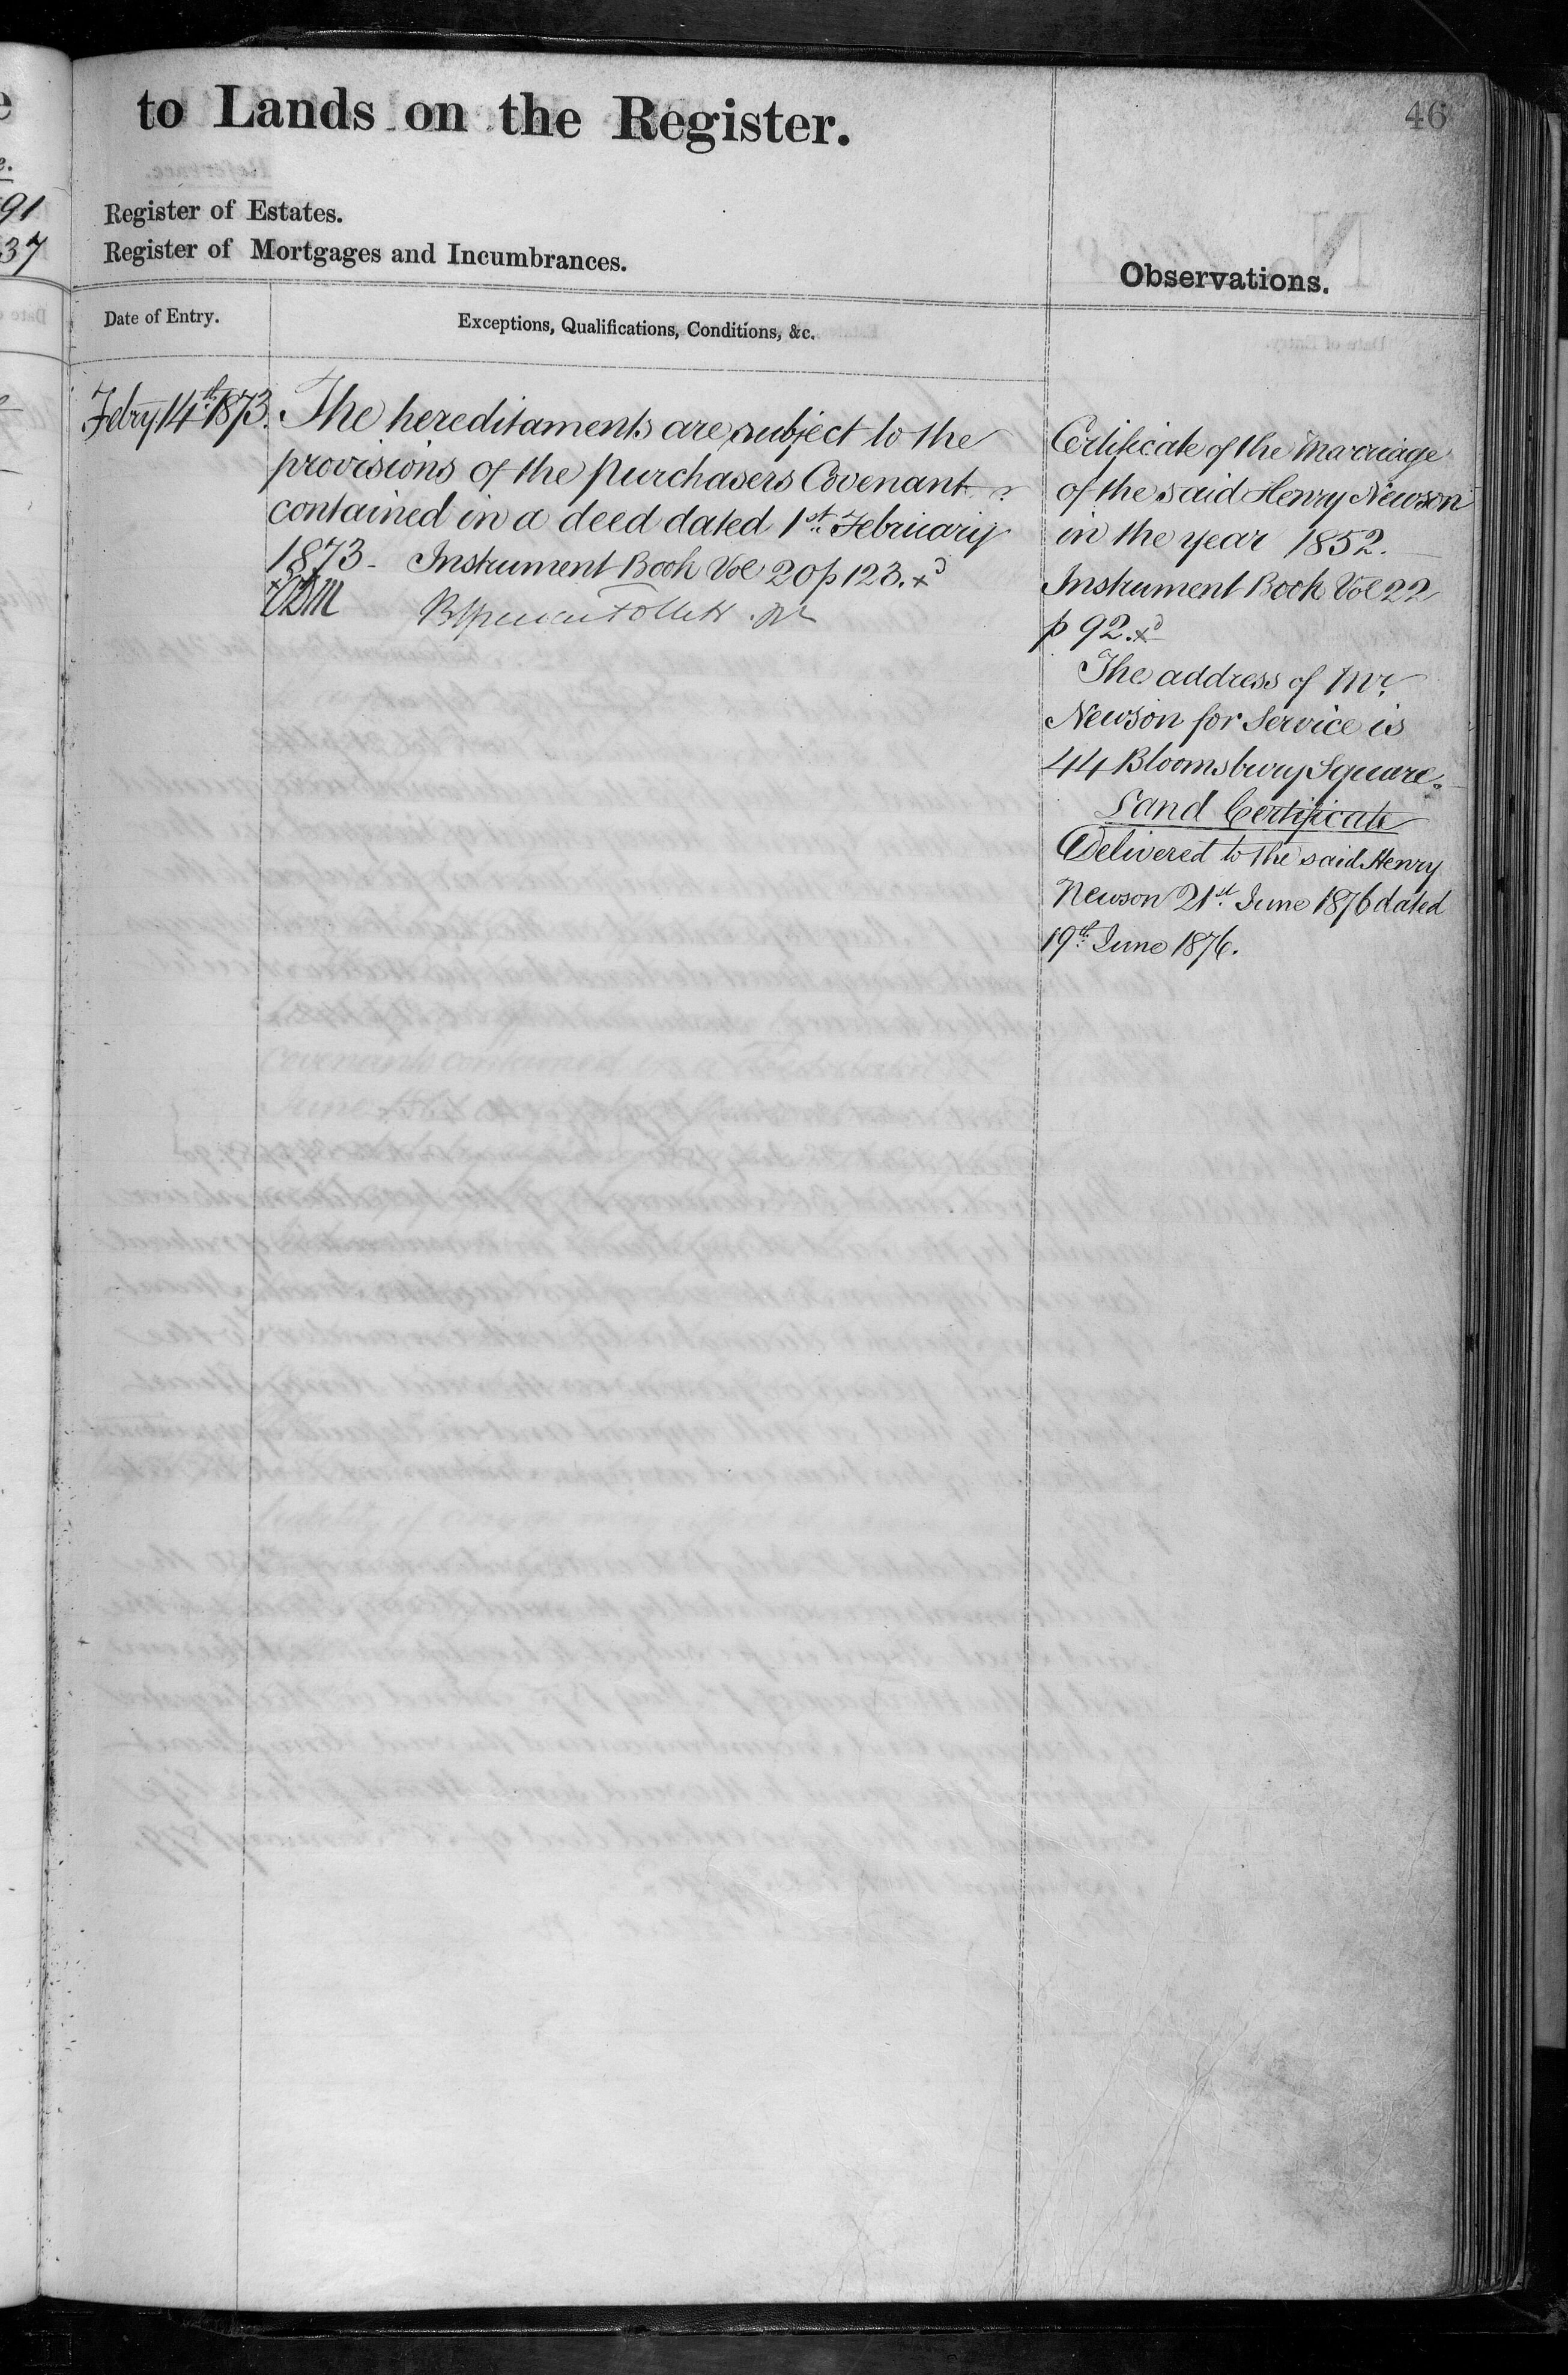 to Lands on the Register.
46
Register of Estates.
Register of Mortgages and Incumbrances.
91
37
Observations.
Date of Entry.
Exceptions, Qualifications, Conditions, &c.
Febry 14th 1873.
The hereditaments are subject to the
provisions of the purchasers Covenant
contained in a deed dated 1st February
1873 - Instrument Book Vol 20 p 123. xd
Follett
Certificate of the marriage
of the said Henry Newson
in the year 1852.
Instrument Book Vol 22
p 92. xd
The address of Mr.
Newson for Service is
44 Bloomsbury Square.
Land Certificate
Delivered to the said Henry
Newson 21st June 1876 dated
19th June 1876.